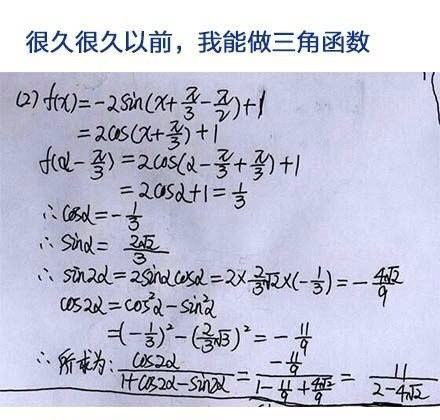 很久很久以前，我能做三角函数
(2) f(x)=-2sin(x+π/3-π/2)+1
=2cos(x+π/3)+1
f(α-π/3)=2cos(α-π/3+π/3)+1
=2cosα+1=1/3
∴cosα=-1/3
∴sinα=2√2/3
∴sin2α=2sinαcosα=2×2/3√2×(-1/3)=-4√2/9
cos2α=cos²α-sin²α
=(-1/3)²-(2/3√3)²=-11/9
∴所求为:cos2α/(1+cos2α-sin2α)=(-11/9)/(1-11/9+4√2/9)=11/(2-4√2)